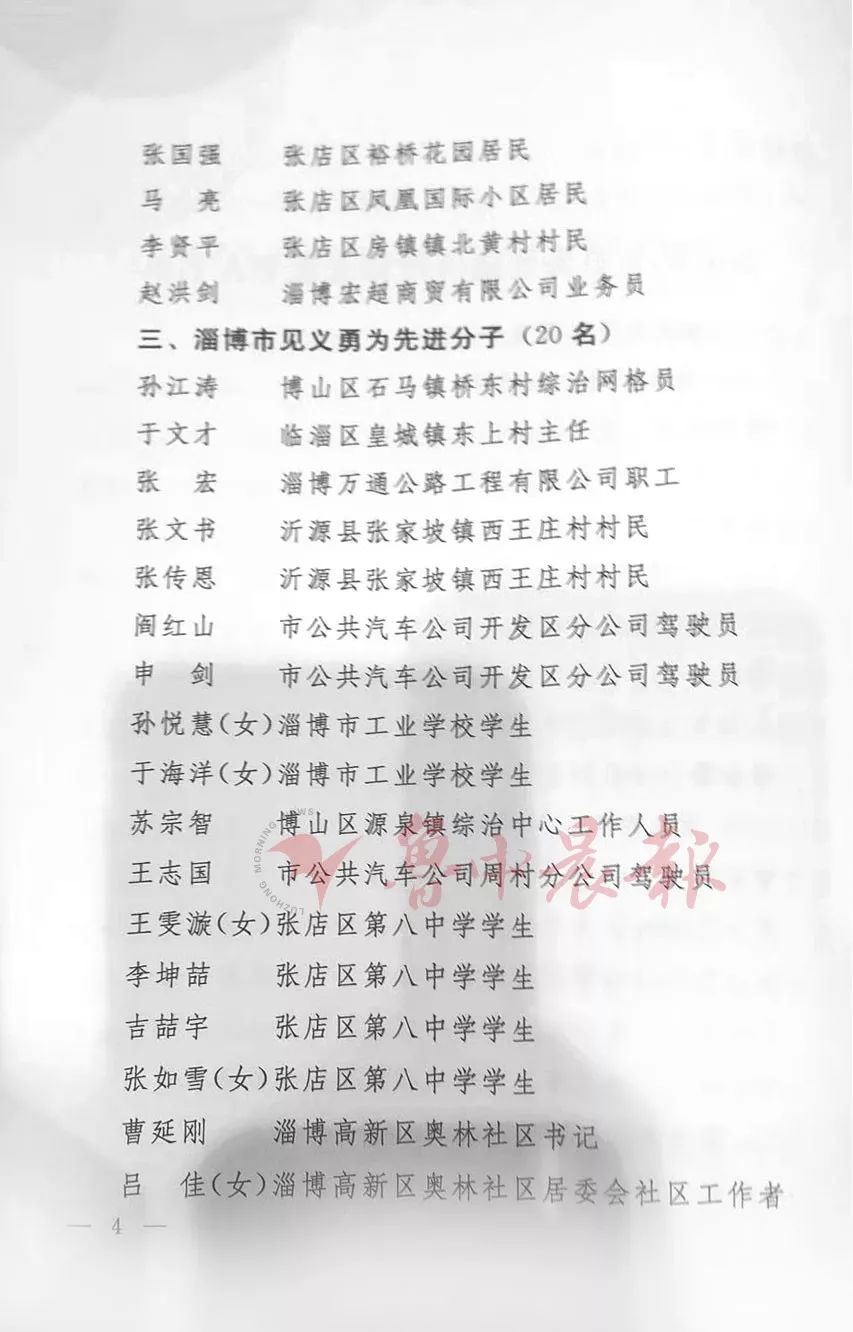 张国强 张店区裕桥花园居民
马 亮 张店区凤凰国际小区居民
李贤平 张店区房镇镇北黄村村民
赵洪剑 淄博宏超商贸有限公司业务员
三、淄博市见义勇为先进分子（20 名）
孙江涛 博山区石马镇桥东村综治网格员
于文才 临淄区皇城镇东上村主任
张 宏 淄博万通公路工程有限公司职工
张文书 沂源县张家坡镇西王庄村村民
张传恩 沂源县张家坡镇西王庄村村民
阎红山 市公共汽车公司开发区分公司驾驶员
申 剑 市公共汽车公司开发区分公司驾驶员
孙悦慧（女）淄博市工业学校学生
于海洋（女）淄博市工业学校学生
苏宗智 博山区源泉镇综治中心工作人员
王志国 市公共汽车公司周村分公司驾驶员
LUZHONG MORNING NEWS
鲁中晨报
王雯漩（女）张店区第八中学学生
李坤喆 张店区第八中学学生
吉喆宇 张店区第八中学学生
张如雪（女）张店区第八中学学生
曹延刚 淄博高新区奥林社区书记
吕 佳（女）淄博高新区奥林社区居委会社区工作者
— 4 —